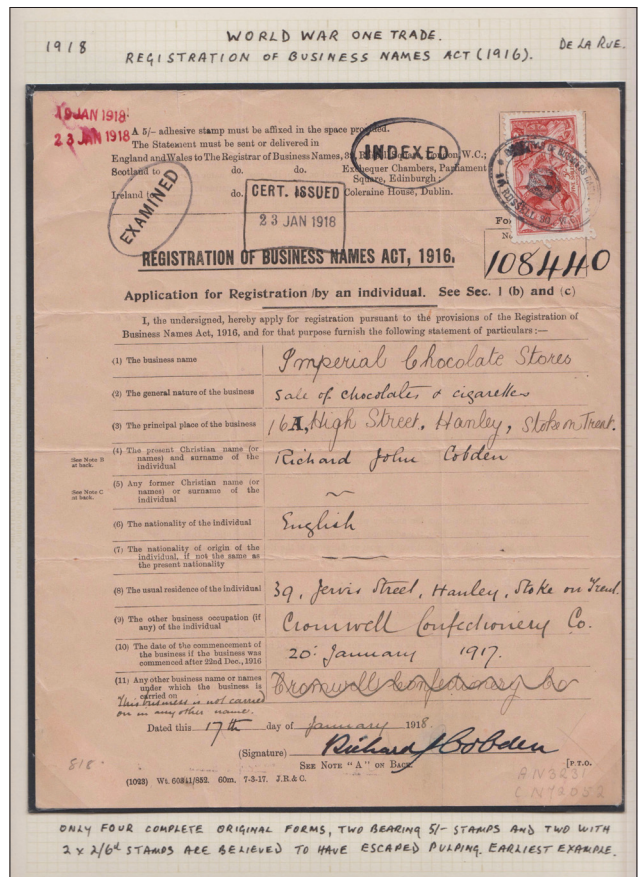 1918
WORLD WAR ONE TRADE.
REGISTRATION OF BUSINESS NAMES ACT (1916).
DE LA RUE.
19 JAN 1918
23 JAN 1918
A 5/- adhesive stamp must be affixed in the space provided.
The Statement must be sent or delivered in
England and Wales to The Registrar of Business Names, 39, London, W.C.;
Scotland to do. do. Exchequer Chambers, Parliament
Square, Edinburgh;
Ireland to do. Coleraine House, Dublin.
INDEXED
EXAMINED
CERT. ISSUED
23 JAN 1918
108440
REGISTRATION OF BUSINESS NAMES ACT, 1916.
Application for Registration by an individual. See Sec. 1 (b) and (c)
I, the undersigned, hereby apply for registration pursuant to the provisions of the Registration of
Business Names Act, 1916, and for that purpose furnish the following statement of particulars :—
(1) The business name Imperial Chocolate Stores
(2) The general nature of the business Sale of chocolates & cigarettes
(3) The principal place of the business 16A, High Street, Hanley, Stoke on Trent.
See Note B
at back.
(4) The present Christian name (or
names) and surname of the
individual Richard John Cobden
See Note C
at back.
(5) Any former Christian name (or
names) or surname of the
individual ~
(6) The nationality of the individual English
(7) The nationality of origin of the
individual, if not the same as
the present nationality —
(8) The usual residence of the individual 39, Jervis Street, Hanley, Stoke on Trent.
(9) The other business occupation (if
any) of the individual Cromwell Confectionery Co.
(10) The date of the commencement of
the business if the business was
commenced after 22nd Dec., 1916 20: January 1917.
(11) Any other business name or names
under which the business is
carried on Cromwell Confectionery Co
This business is not carried
on in any other name.
Dated this 17th day of January 1918.
(Signature) Richard J Cobden
SEE NOTE "A" ON BACK.
[P.T.O.
818
(1023) Wt. 60811/852. 60m. 7-3-17. J.R.& C.
AN3231
CN72052
ONLY FOUR COMPLETE ORIGINAL FORMS, TWO BEARING 5/- STAMPS AND TWO WITH
2 x 2/6d STAMPS ARE BELIEVED TO HAVE ESCAPED PULPING. EARLIEST EXAMPLE.